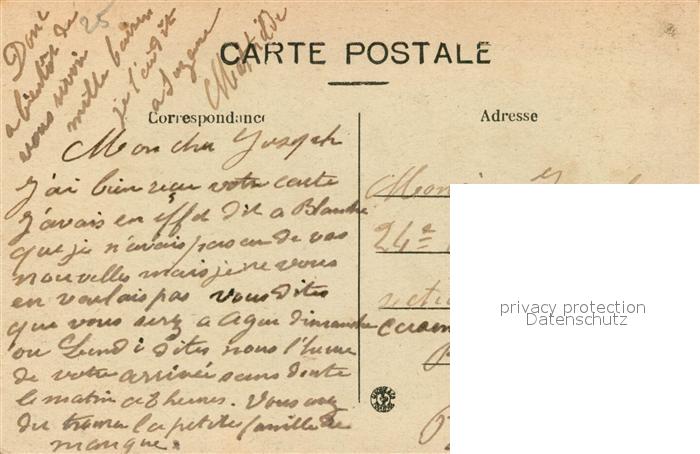 Donc
a bientot de
vous revoir
mille baisers
25
je l'ai dit
a Suzane
Mathilde
CARTE POSTALE
Correspondance
Mon cher Joseph
j'ai bien reçu votre carte
j'avais en effet dit a Blanche
que je n'avais pas eu de vos
nouvelles mais je ne vous
en voulais pas vous dites
que vous serez a Agen dimanche
ou Lundi dites nous l'heure
de votre arrivée sans doute
le matin a 8 heures. Vous avez
du trouver la petite famille
manque.
Adresse
24e
privacy protection
Datenschutz